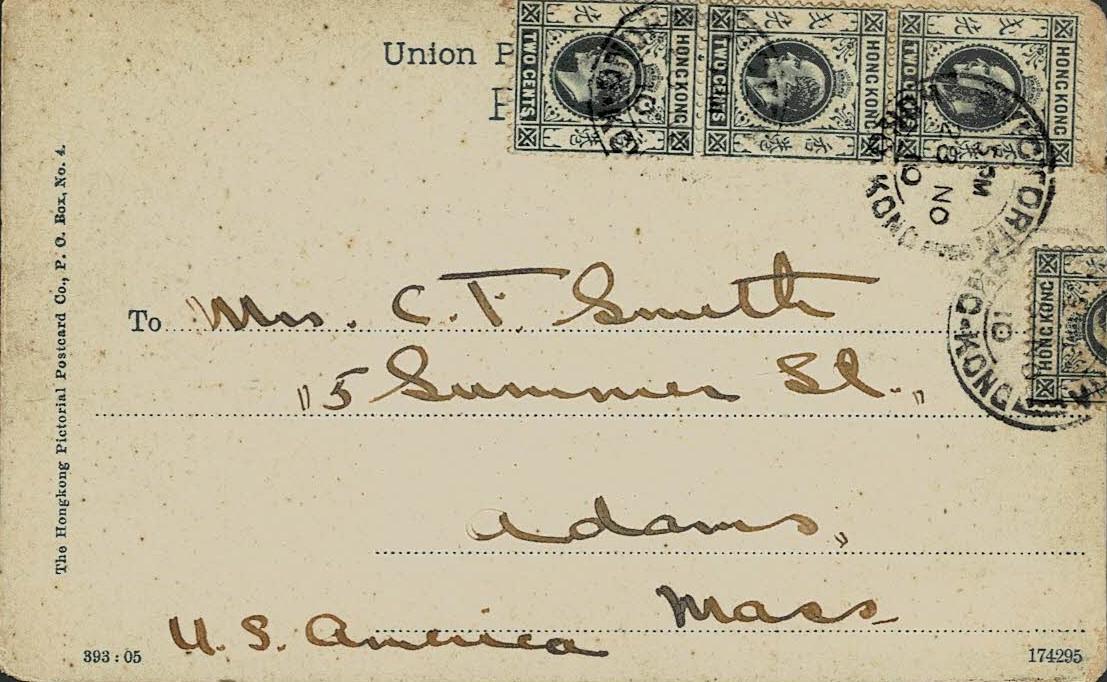 Union P
TWO CENTS HONG KONG TWO CENTS HONG KONG TWO CENTS HONG KONG
香港 香港 香港
VICTORIA
5 PM
28 NO
10
HONG KONG
HONG KONG
To Mrs. C. T. Smith
"5 Summer St.,"
Adams,
Mass.
U.S. America
The Hongkong Pictorial Postcard Co., P. O. Box, No. 4.
393 : 05
174295